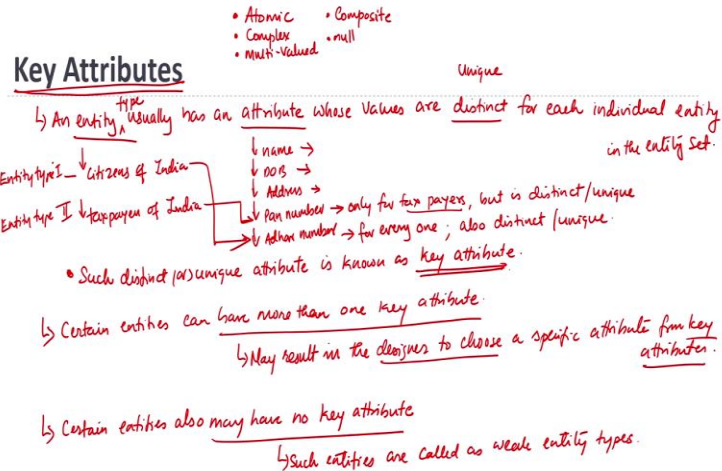 • Atomic • Composite
• Complex • null
• multi-valued
Key Attributes
Unique
↳ An entity type usually has an attribute whose values are distinct for each individual entity
in the entity set.
Entity type I – ↓ citizens of India
Entity type II ↓ taxpayers of India
↓ name →
↓ DOB →
↓ Address →
↓ Pan number → only for tax payers, but is distinct/unique
↓ Adhar number → for every one ; also distinct/unique.
• Such distinct (or) unique attribute is known as key attribute.
↳ Certain entities can have more than one key attribute.
↳ May result in the designer to choose a specific attribute from key
attributes.
↳ Certain entities also may have no key attribute
↳ Such entities are called as weak entity types.